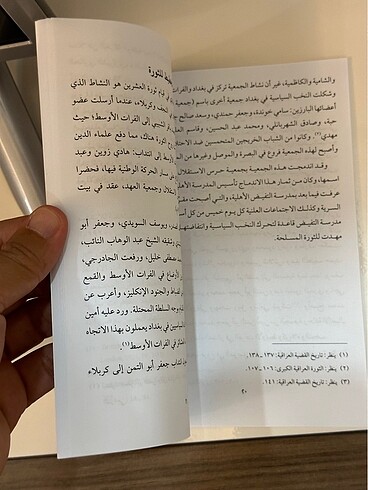 والشامية والكاظمية، غير أن نشاط الجمعية تركز في بغداد والفرات
وشكلت النخب السياسية في بغداد جمعية أخرى باسم (جمعية
أعضائها البارزين: سامي خوندة، وجعفر حمدي، وسعد صالح
حبة، وصادق الشهرباني، ومحمد عبد الحسين، وقاسم العل
مهدي(٢). وكانوا من الشباب الخريجين المتحمسين ضد الاحتلا
وأصبح لهذه الجمعية فروع في البصرة والموصل وغيرها من الم
وقد اندمجت هذه الجمعية بجمعية حرس الاستقلال
اسمها، وكان من ثمار هذا الاندماج تأسيس المدرسة الأهل
عرفت فيما بعد بمدرسة التفيض الأهلية، والتي أصبحت مقر
السرية وكذلك الاجتماعات العلنية كل يوم خميس من كل أس
مدرسة التفيض قاعدة لتحرك النخب السياسية وانتفاضتها
مهدت للثورة المسلحة.
(١) ينظر: تاريخ القضية العراقية: ١٣٧ـ١٣٨.
(٢) ينظر: الثورة العراقية الكبرى: ١٠٦ـ١٠٧.
(٣) ينظر: تاريخ القضية العراقية: ١٤١.
٢٠
للثورة
قيام ثورة العشرين هو النشاط الذي
النجف وكربلاء، عندما أرسلت عضو
الشبيبي إلى الفرات الأوسط؛ حيث
هناك، مما دفع علماء الدين
إلى انتداب: هادي زوين وعبد
سار الحركة الوطنية فيها، فحضرا
وجمعية العهد، عقد في بيت
ويوسف السويدي، وجعفر أبو
وشقيقه الشيخ عبد الوهاب النائب،
خليل، ورفعت الجادرجي،
الأوضاع في الفرات الأوسط والقمع
والجنود الإنكليز، وأعرب عن
وجه السلطة المحتلة. ورد عليه أمين
في بغداد يعملون بهذا الاتجاه
في الفرات الأوسط(١).
انتداب جعفر أبو التمن إلى كربلاء